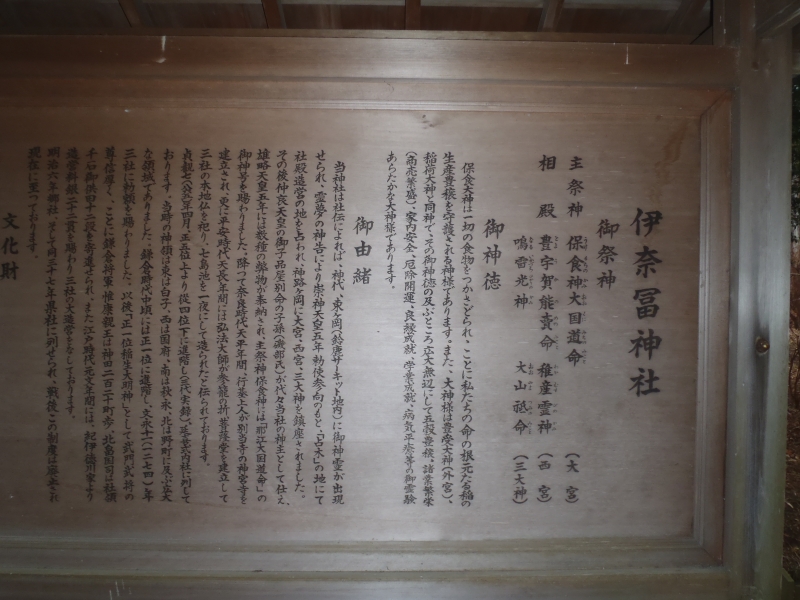 伊奈冨神社
御祭神
主祭神 保食神 大国道命 (大宮)
相殿 豊宇賀能売命 稚産霊神 (西宮)
鳴雷光神 大山祇命 (三大神)
御神徳
保食大神は一切の食物をつかさどられ、ことに私たちの命の根元たる稲の
生産豊穣を守護される神様であります。また、大神様は豊受大神(外宮)、
稲荷大神と同神で、その御神徳の及ぶところ広大無辺にして五穀豊穣、諸業繁栄
(商売繁盛)、家内安全、厄除開運、良縁成就、学業成就、病気平癒等の御霊験
あらたかな大神様であります。
御由緒
当神社は社伝によれば、神代、東ヶ岡(鈴鹿サーキット地内)に御神霊が出現
せられ、霊夢の神告により崇神天皇五年勅使参向のもと、「占木」の地にて
社殿造営の地を占われ、神路ヶ岡に大宮、西宮、三大神を鎮座されました。
その後仲哀天皇の御子品屋別命の子孫(磯部氏)が代々当社の神主として仕え、
雄略天皇五年には数種の幣物が奉納され、主祭神保食神には「那江大国道命」の
御神号を賜わりました。降って奈良時代天平年間、行基上人が別当寺の神宮寺を
建立され、更に平安時代天長年間には弘法大師が参籠の折、菩薩堂を建立して
三社の本地仏を祀り、七島池を一夜にして造られたと伝られております。
貞観七(八六五)年四月、正五位上より従四位下に進階し(三代実録)、延喜式内社に列して
おります。当時の神領は東は白子、西は国府、南は秋永、北は野町に及ぶ広大
な領域でありました。鎌倉時代中頃には正一位に進階し、文永十一(一二七四)年
三社に勅額を賜わりました。以後「正一位稲生大明神」として武門武将の
尊信厚く、ことに鎌倉将軍惟康親王は神田二百二十町歩、北畠国司は社領
千石御供田十二段を寄進せられ、また江戸時代元文年間には、紀伊徳川家より
造営料銀二十二貫を賜わり三社の大造営をなしております。
明治六年郷社、そして同三十七年県社に列せられ、戦後、この制度は廃止され
現在に至っております。
文化財